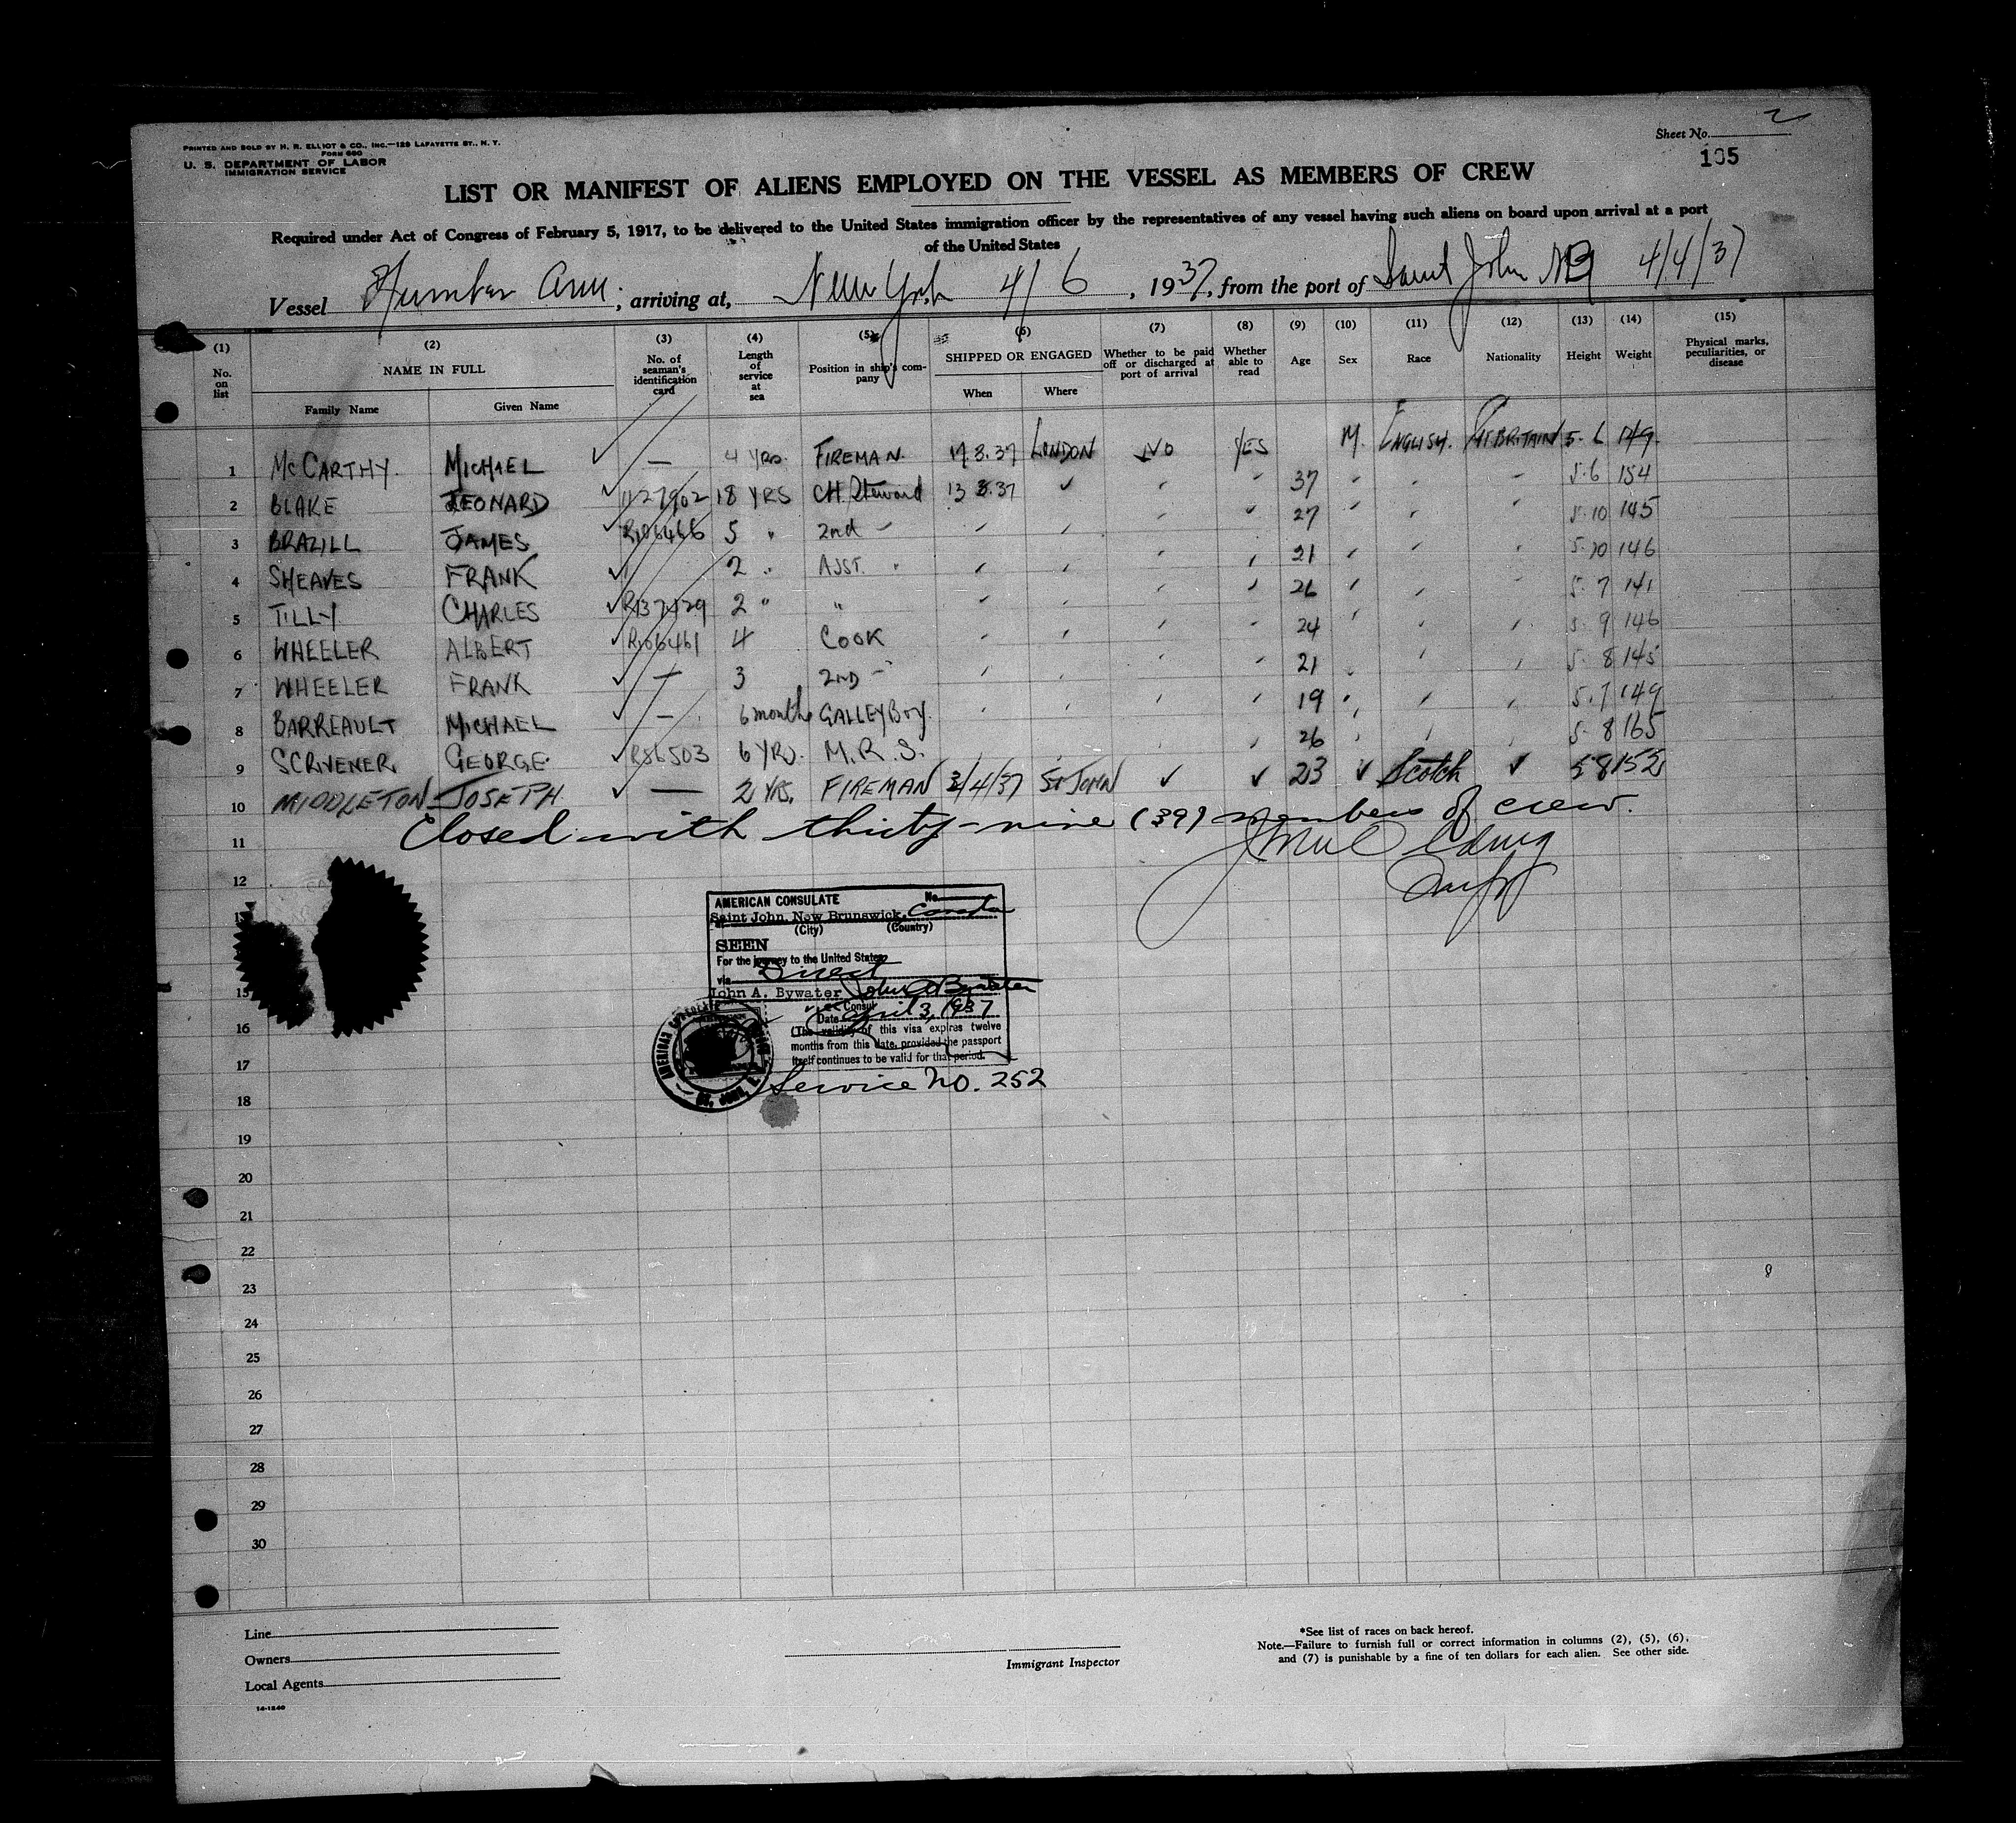 PRINTED AND SOLD BY H. R. ELLIOT & CO., INC.—129 LAFAYETTE ST., N. Y.
FORM 680
U. S. DEPARTMENT OF LABOR
IMMIGRATION SERVICE
Sheet No. 2
105
LIST OR MANIFEST OF ALIENS EMPLOYED ON THE VESSEL AS MEMBERS OF CREW
Required under Act of Congress of February 5, 1917, to be delivered to the United States immigration officer by the representatives of any vessel having such aliens on board upon arrival at a port
of the United States
Vessel Humber Arm; arriving at, New York 4/6, 1937, from the port of Saint John NB 4/4/37
(1) No. on list
(2) NAME IN FULL
Family Name Given Name
(3) No. of seaman's identification card
(4) Length of service at sea
(5) Position in ship's company
(6) SHIPPED OR ENGAGED
When Where
(7) Whether to be paid off or discharged at port of arrival
(8) Whether able to read
(9) Age
(10) Sex
(11) Race
(12) Nationality
(13) Height
(14) Weight
(15) Physical marks, peculiarities, or disease
1 McCARTHY. MICHAEL ✓ — 4 YRS. FIREMAN. 17.3.37 LONDON NO YES M. ENGLISH. GT BRITAIN 5-6 149
2 BLAKE LEONARD ✓ 1127902 18 YRS CH. Steward 13 3.37 ✓ " " 37 " " " 5.6 154
3 BRAZILL JAMES ✓ R106466 5 " 2nd " " " " " 27 " " " 5.10 145
4 SHEAVES FRANK ✓ 2 " ASST. " " " " " 21 " " " 5.10 146
5 TILLY CHARLES ✓ R137129 2 " " " " " " 26 " " " 5.7 141
6 WHEELER ALBERT ✓ R106461 4 COOK " " " " 24 " " " 5.9 146
7 WHEELER FRANK ✓ — 3 2ND " " " " " 21 " " " 5.8 145
8 BARREAULT MICHAEL ✓ — 6 months GALLEY BOY. " " " " 19 " " " 5.7 149
9 SCRIVENER GEORGE ✓ R86503 6 YRS. M.R.S. " " " " 26 " " " 5.8 165
10 MIDDLETON JOSEPH. ✓ — 2 YRS. FIREMAN 3/4/37 St JOHN ✓ ✓ 23 ✓ Scotch ✓ 5 8 152
Closed with thirty-nine (39) members of crew.
11
12
13
15
16
17
18
19
20
21
22
23
24
25
26
27
28
29
30
AMERICAN CONSULATE No.
Saint John, New Brunswick, Canada
(City) (Country)
SEEN
For the journey to the United States
via Direct
John A. Bywater John A Bywater
Vice Consul
Date April 3, 1937
(The validity of this visa expires twelve
months from this date, provided the passport
itself continues to be valid for that period.
Service No. 252
8
Line
Owners
Local Agents
14-1240
Immigrant Inspector
*See list of races on back hereof.
Note.—Failure to furnish full or correct information in columns (2), (5), (6),
and (7) is punishable by a fine of ten dollars for each alien. See other side.